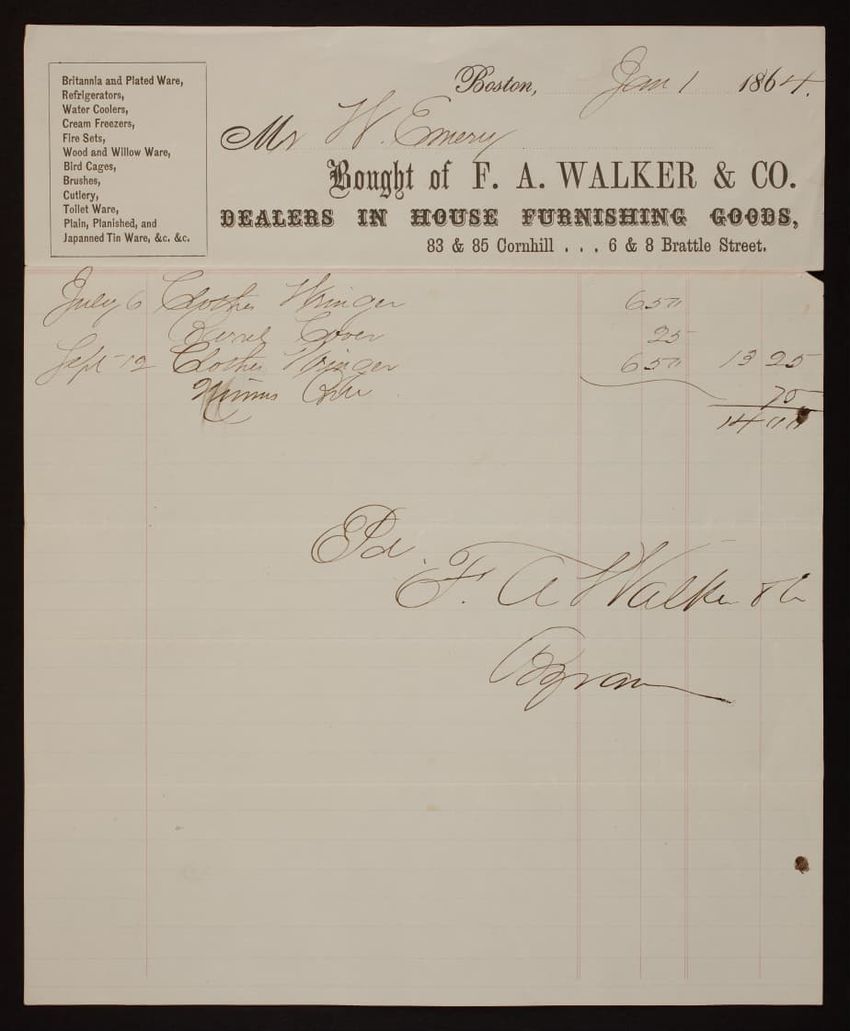 Britannia and Plated Ware,
Refrigerators,
Water Coolers,
Cream Freezers,
Fire Sets,
Wood and Willow Ware,
Bird Cages,
Brushes,
Cutlery,
Toilet Ware,
Plain, Planished, and
Japanned Tin Ware, &c. &c.
Boston, Jan 1 1864.
Mr W. Emery
Bought of F. A. WALKER & CO.
DEALERS IN HOUSE FURNISHING GOODS,
83 & 85 Cornhill . . . 6 & 8 Brattle Street.
July 6 Clothes Wringer 6 50
Cover 25
Sept 12 Clothes Wringer 6 50 13 25
75
14 00
Pd.
F. A Walker & Co